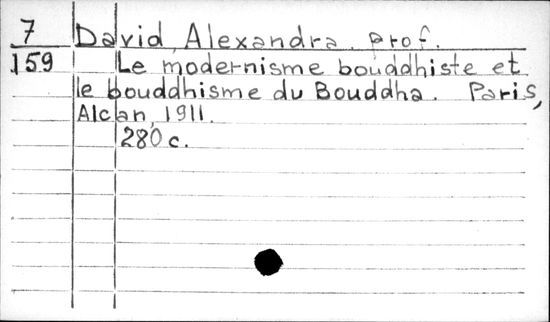 7 David, Alexandra. prof.
159 Le modernisme bouddhiste et
le bouddhisme du Bouddha. Paris,
Alcan, 1911.
280 c.